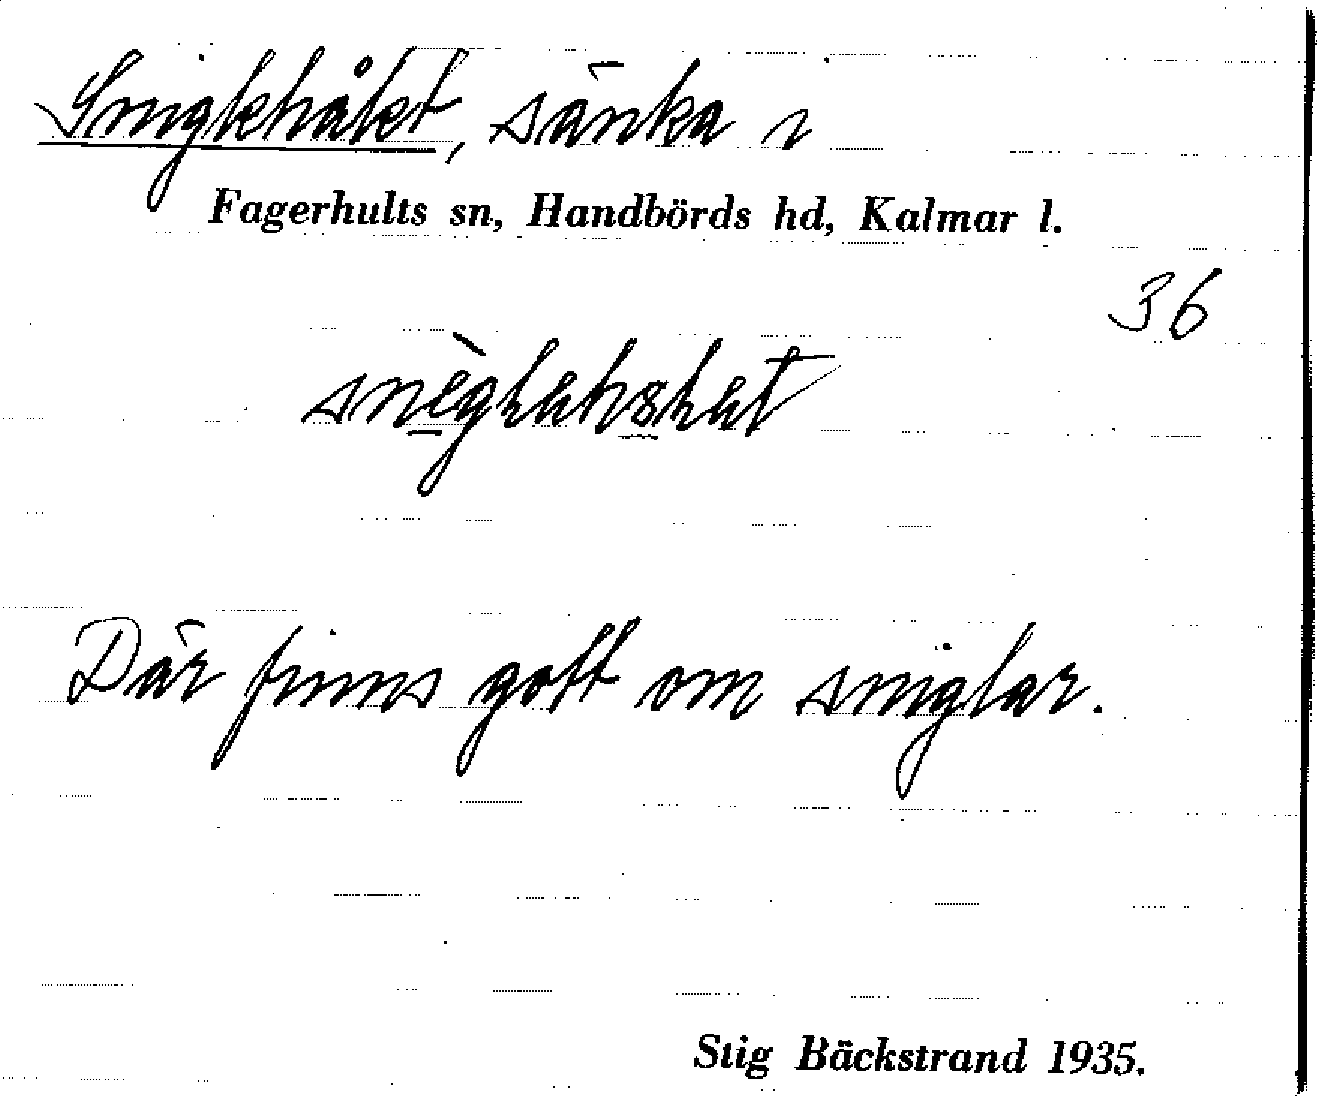 Snigkhålet, sänka i
Fagerhults sn, Handbörds hd, Kalmar l.
36
Där finns gott om sniglar.
Stig Bäckstrand 1935.